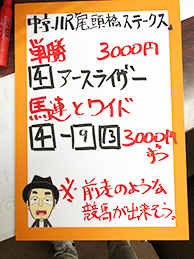 中京JR尾頭橋ステークス。
単勝 3000円
4 アースライザー
馬連とワイド
4-9 13 3000円
ずつ
※前走のような
競馬が出来そう。